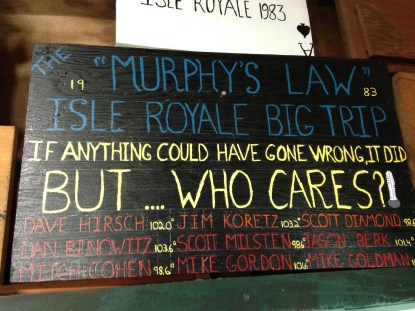 ISLE ROYALE 1983
A
THE "MURPHY'S LAW"
19 83
ISLE ROYALE BIG TRIP
IF ANYTHING COULD HAVE GONE WRONG, IT DID
BUT .... WHO CARES?
DAVE HIRSCH 102.0° JIM KORETZ 103.2° SCOTT DIAMOND 98.6
DAN BINOWITZ 103.6° SCOTT MILSTEN 98.6° JASON BERK 101.4°
MITCH COHEN 98.6° MIKE GORDON 101.6° MIKE GOLDMAN